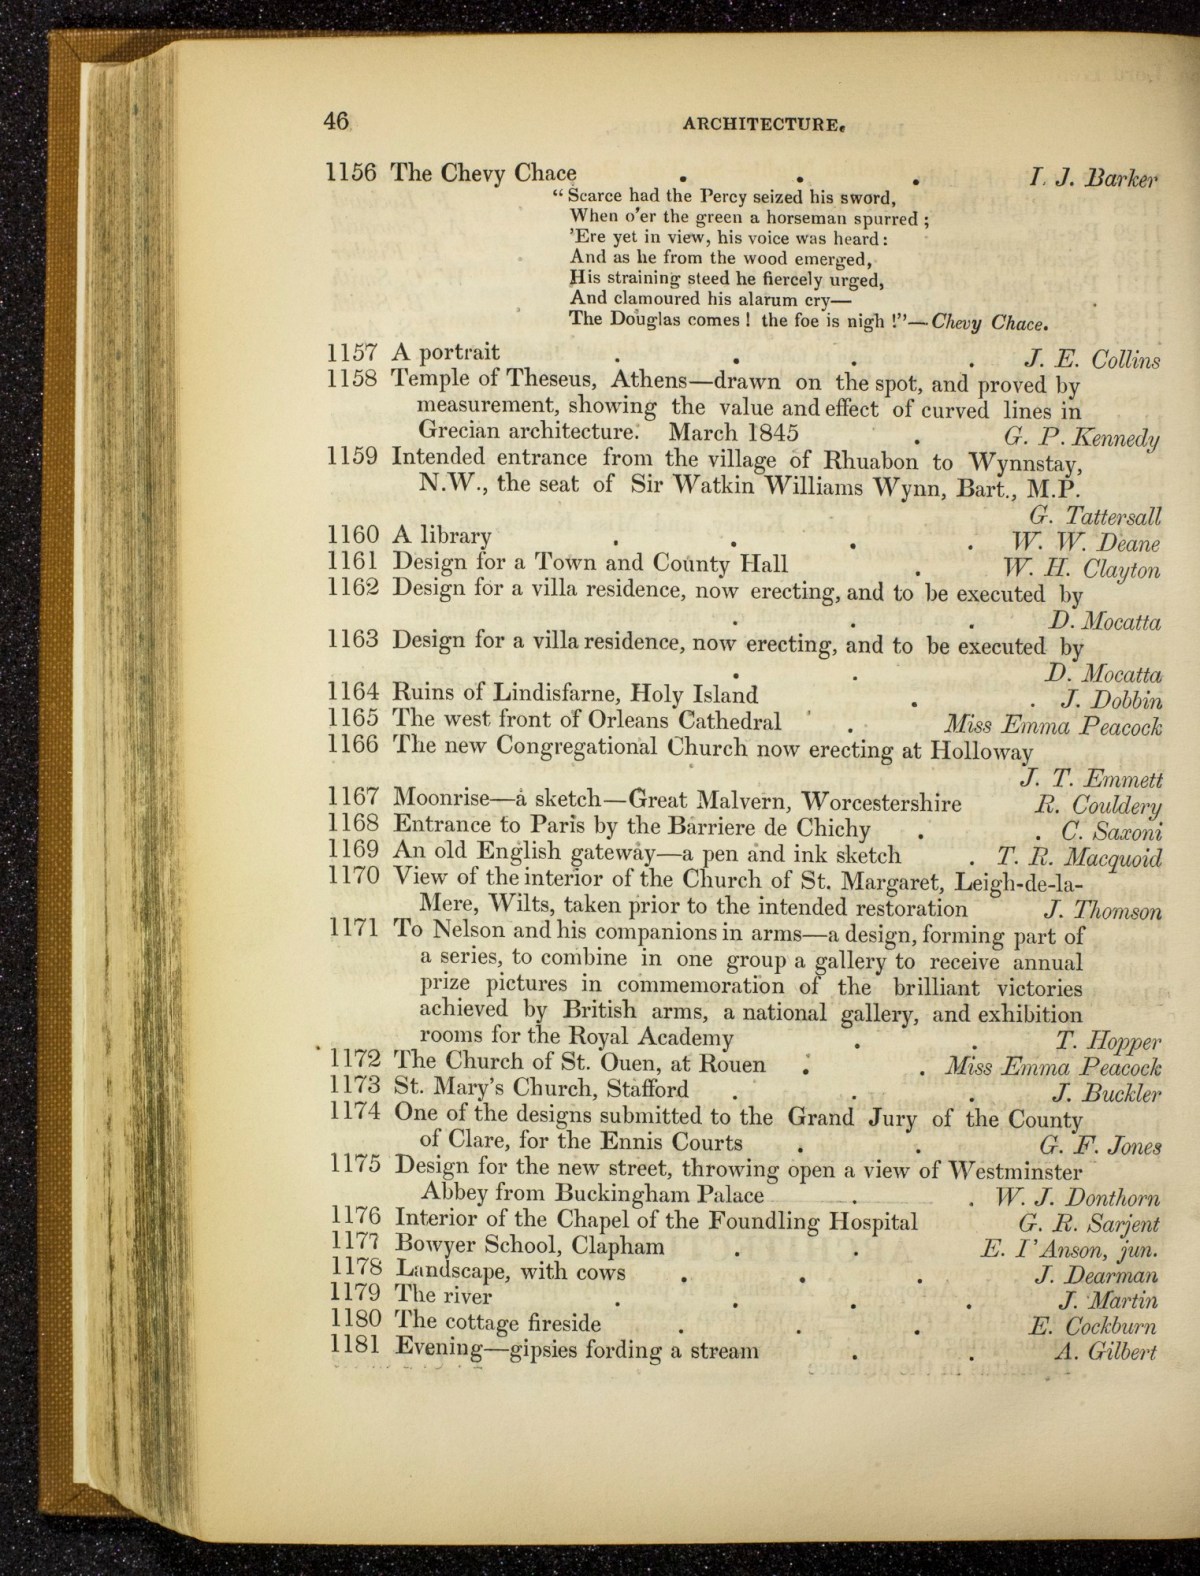 46 ARCHITECTURE.
1156 The Chevy Chace . . . I. J. Barker
“ Scarce had the Percy seized his sword,
When o'er the green a horseman spurred ;
'Ere yet in view, his voice was heard :
And as he from the wood emerged,
His straining steed he fiercely urged,
And clamoured his alarum cry—
The Douglas comes ! the foe is nigh !”—Chevy Chace.
1157 A portrait . . . . J. E. Collins
1158 Temple of Theseus, Athens—drawn on the spot, and proved by
measurement, showing the value and effect of curved lines in
Grecian architecture. March 1845 . G. P. Kennedy
1159 Intended entrance from the village of Rhuabon to Wynnstay,
N.W., the seat of Sir Watkin Williams Wynn, Bart., M.P.
G. Tattersall
1160 A library . . . . W. W. Deane
1161 Design for a Town and County Hall . W. H. Clayton
1162 Design for a villa residence, now erecting, and to be executed by
. . . D. Mocatta
1163 Design for a villa residence, now erecting, and to be executed by
. . D. Mocatta
1164 Ruins of Lindisfarne, Holy Island . . J. Dobbin
1165 The west front of Orleans Cathedral . Miss Emma Peacock
1166 The new Congregational Church now erecting at Holloway
J. T. Emmett
1167 Moonrise—a sketch—Great Malvern, Worcestershire R. Couldery
1168 Entrance to Paris by the Barriere de Chichy . . C. Saxoni
1169 An old English gateway—a pen and ink sketch . T. R. Macquoid
1170 View of the interior of the Church of St. Margaret, Leigh-de-la-
Mere, Wilts, taken prior to the intended restoration J. Thomson
1171 To Nelson and his companions in arms—a design, forming part of
a series, to combine in one group a gallery to receive annual
prize pictures in commemoration of the brilliant victories
achieved by British arms, a national gallery, and exhibition
rooms for the Royal Academy . . T. Hopper
1172 The Church of St. Ouen, at Rouen . . Miss Emma Peacock
1173 St. Mary's Church, Stafford . . . J. Buckler
1174 One of the designs submitted to the Grand Jury of the County
of Clare, for the Ennis Courts . . G. F. Jones
1175 Design for the new street, throwing open a view of Westminster
Abbey from Buckingham Palace . . W. J. Donthorn
1176 Interior of the Chapel of the Foundling Hospital G. R. Sarjent
1177 Bowyer School, Clapham . . E. I'Anson, jun.
1178 Landscape, with cows . . . J. Dearman
1179 The river . . . . J. Martin
1180 The cottage fireside . . . E. Cockburn
1181 Evening—gipsies fording a stream . . A. Gilbert